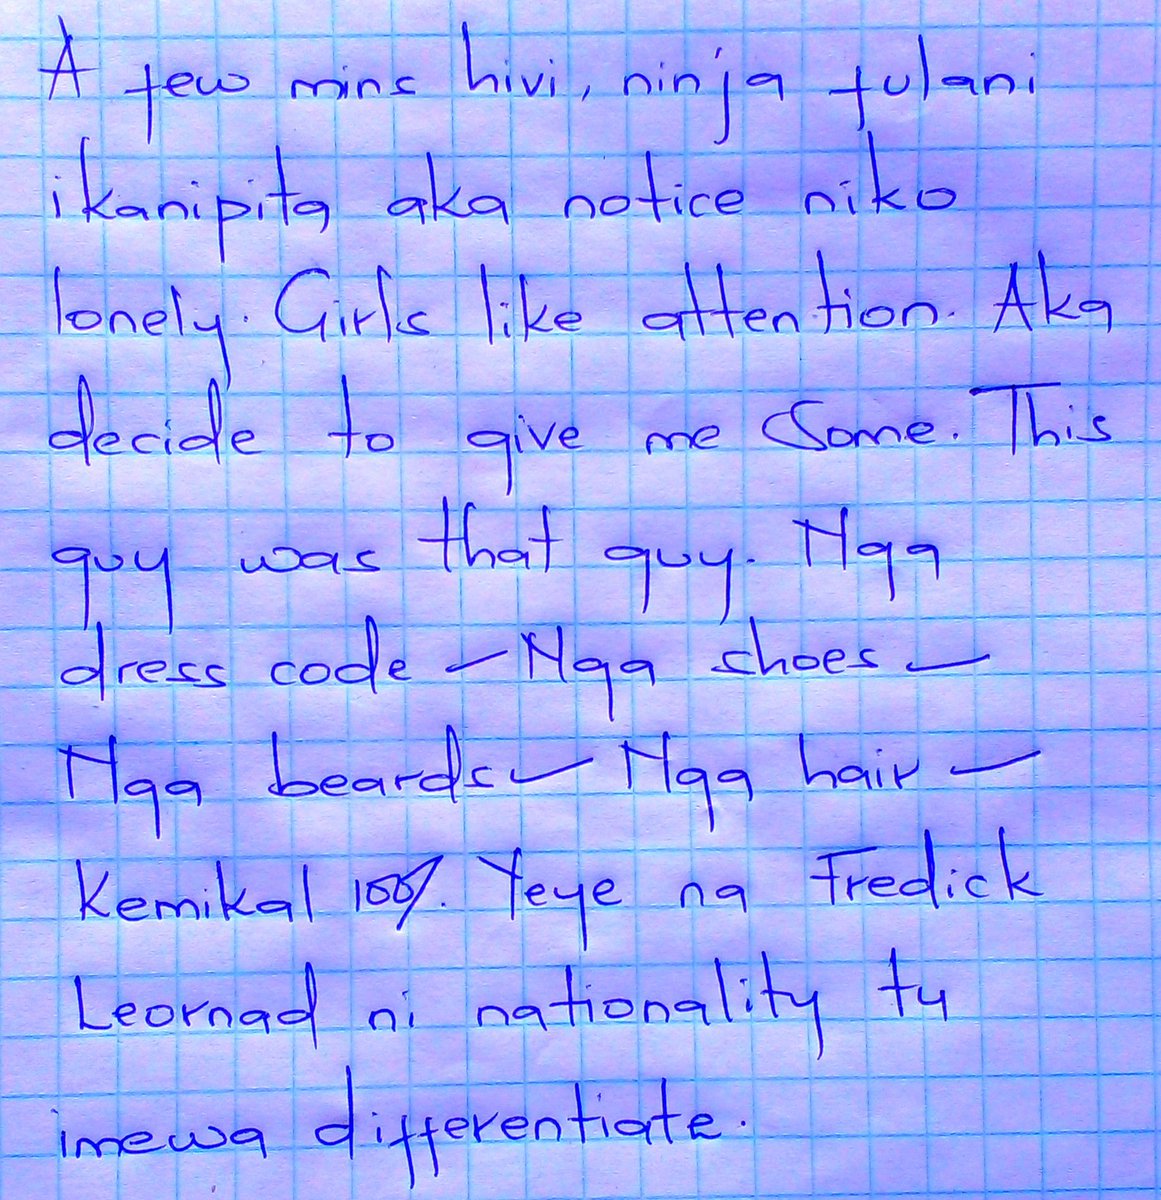 A few mins hivi, ninja fulani
ikanipita aka notice niko
lonely. Girls like attention. Aka
decide to give me some. This
guy was that guy. Nga
dress code - Nga shoes -
Nga beards - Nga hair -
Kemikal 100%. Yeye na Fredick
Leornad ni nationality tu
imewa differentiate.